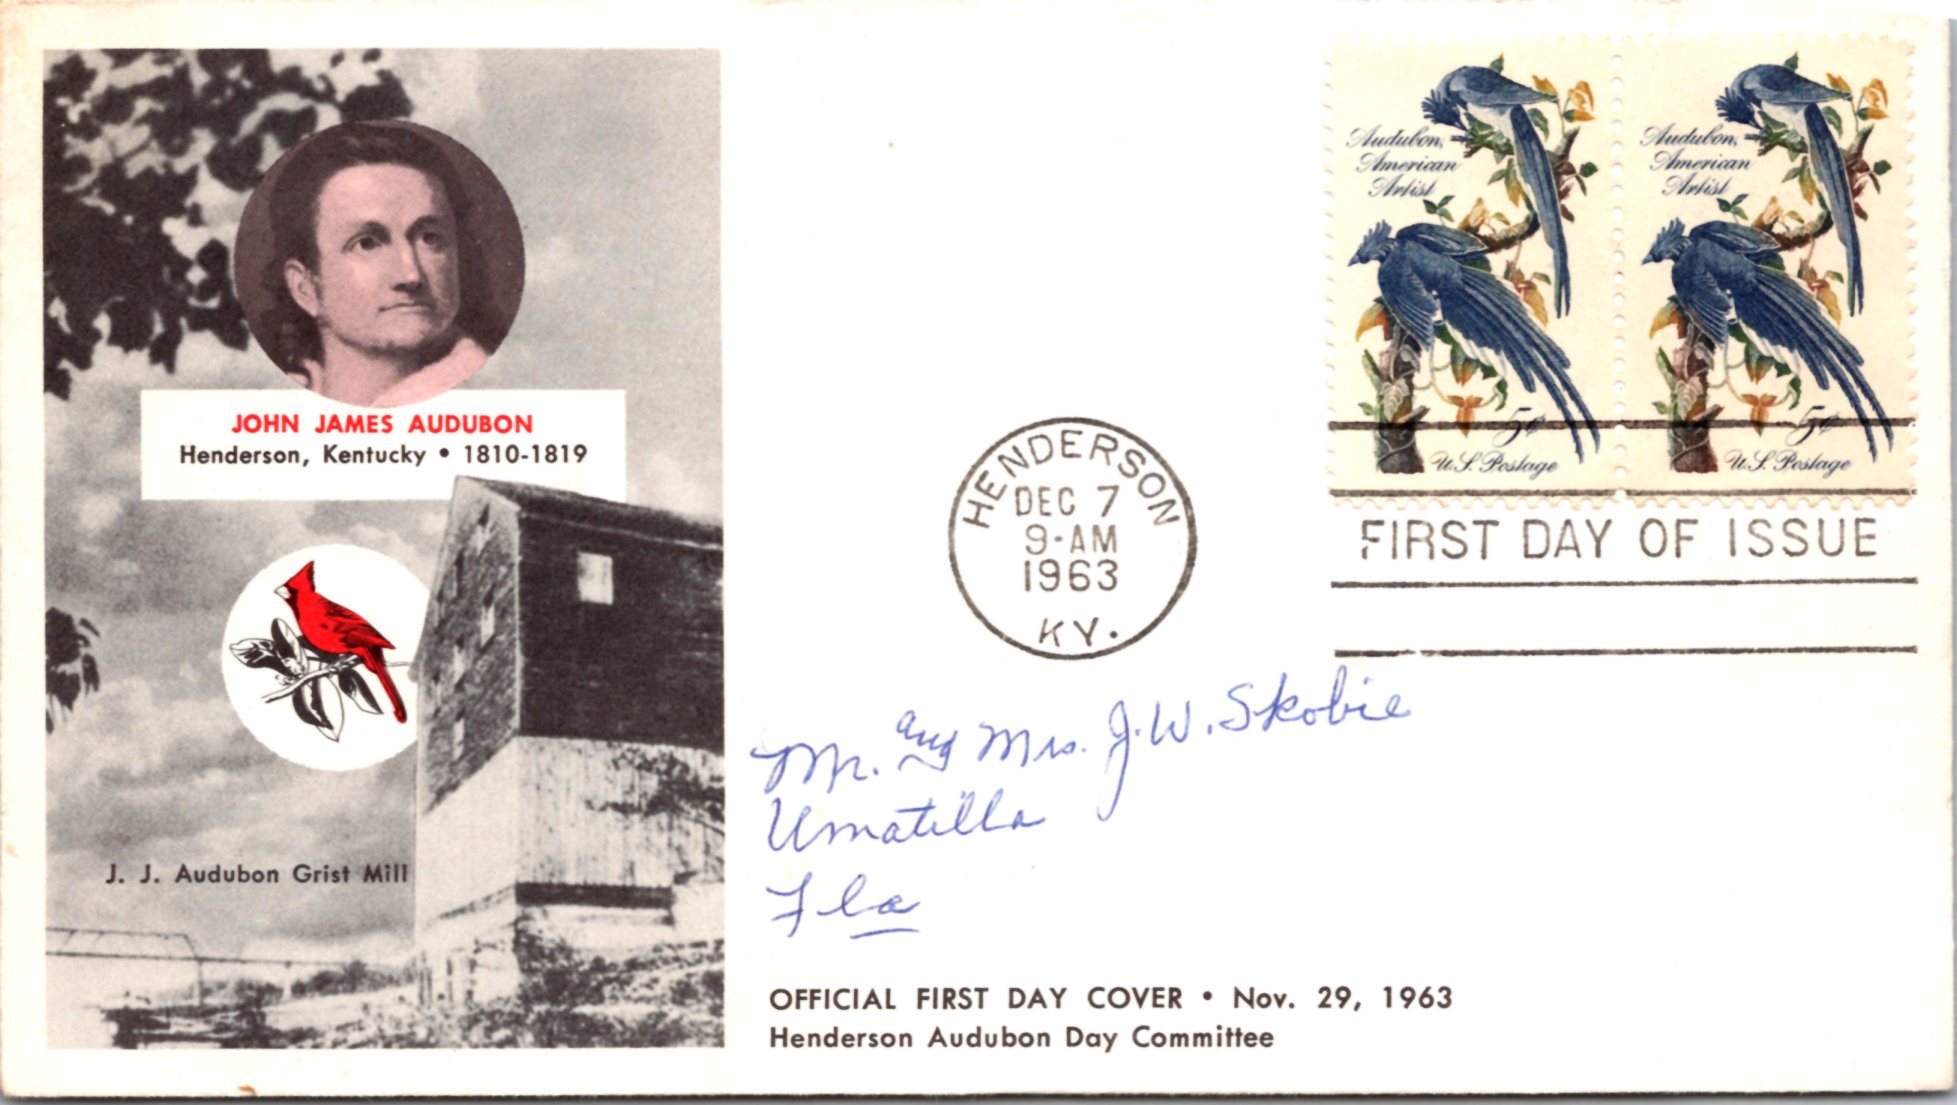 JOHN JAMES AUDUBON
Henderson, Kentucky • 1810-1819
J. J. Audubon Grist Mill
Audubon,
American
Artist
5¢
U.S. Postage
Audubon,
American
Artist
5¢
U.S. Postage
HENDERSON
DEC 7
9-AM
1963
KY.
FIRST DAY OF ISSUE
Mr. and Mrs. J. W. Skobie
Umatilla
Fla
OFFICIAL FIRST DAY COVER • Nov. 29, 1963
Henderson Audubon Day Committee